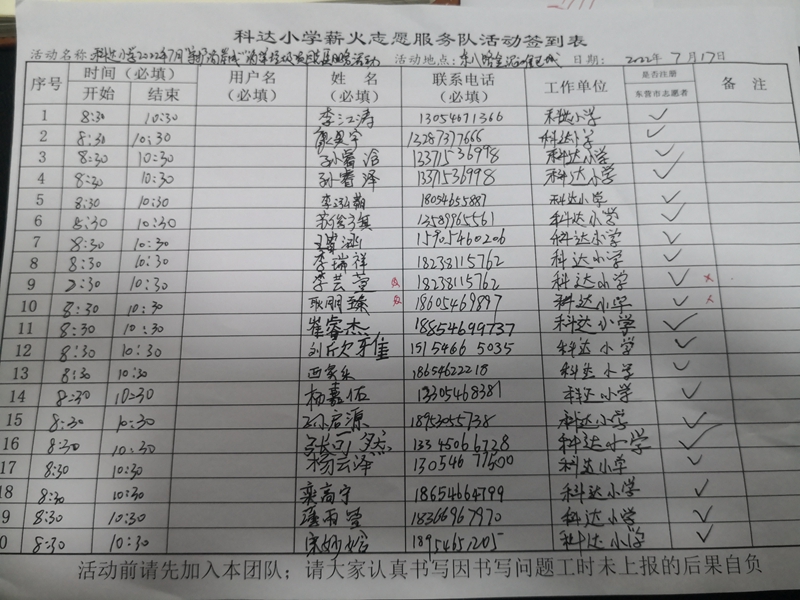 科达小学薪火志愿服务队活动签到表
活动名称:科达小学2022年7月 活动地点: 日期: 2022年7月17日
序号 时间（必填） 用户名（必填） 姓 名（必填） 联系电话（必填） 工作单位 是否注册东营市志愿者 备 注
开始 结束
1 8:30 10:30 李江涛 13054671366 科达小学 ✓
2 8:30 10:30 13287377666 科达小学 ✓
3 8:30 10:30 孙睿涵 13371536998 科达小学 ✓
4 8:30 10:30 孙睿泽 13371536998 科达小学 ✓
5 8:30 10:30 18054655887 科达小学 ✓
6 8:30 10:30 13589965561 科达小学 ✓
7 8:30 10:30 15905460206 科达小学 ✓
8 8:30 10:30 李瑞祥 18238115762 科达小学 ✓
9 10:30 李芸萱 女 18238115762 科达小学 ✓ ×
10 8:30 10:30 耿明臻 18605469897 科达小学 ✓ ×
11 8:30 10:30 崔睿杰 18854699737 科达小学 ✓
12 8:30 10:30 15154665035 科达小学 ✓
13 8:30 10:30 18654622218 科达小学 ✓
14 8:30 10:30 杨嘉佑 科达小学 ✓
15 8:30 10:30 孙启源 18953055738 科达小学 ✓
16 8:30 10:30 13345066728 科达小学 ✓
17 8:30 10:30 杨云泽 13054677500 科达小学 ✓
18 8:30 10:30 栾高宁 18654664799 科达小学 ✓
9 8:30 10:30 潘雨莹 18366967970 科达小学 ✓
0 8:30 10:30 18954651205 科达小学 ✓
活动前请先加入本团队；请大家认真书写因书写问题工时未上报的后果自负